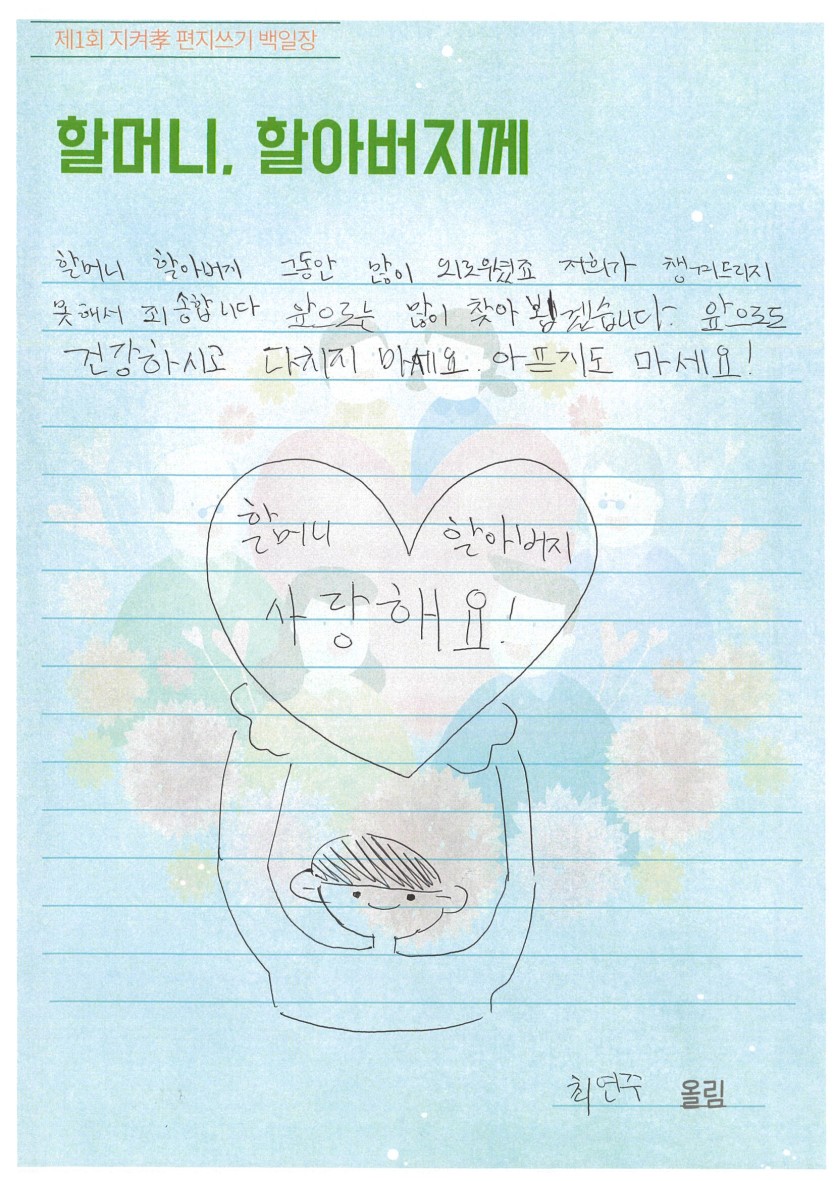 제1회 지켜孝 편지쓰기 백일장
할머니, 할아버지께
할머니 할아버지 그동안 많이 외로우셨죠 저희가 챙겨드리지
못해서 죄송합니다 앞으로는 많이 찾아 뵙겠습니다. 앞으로도
건강하시고 다치지 마세요. 아프지도 마세요!
할머니 할아버지
사랑해요!
최연주 올림